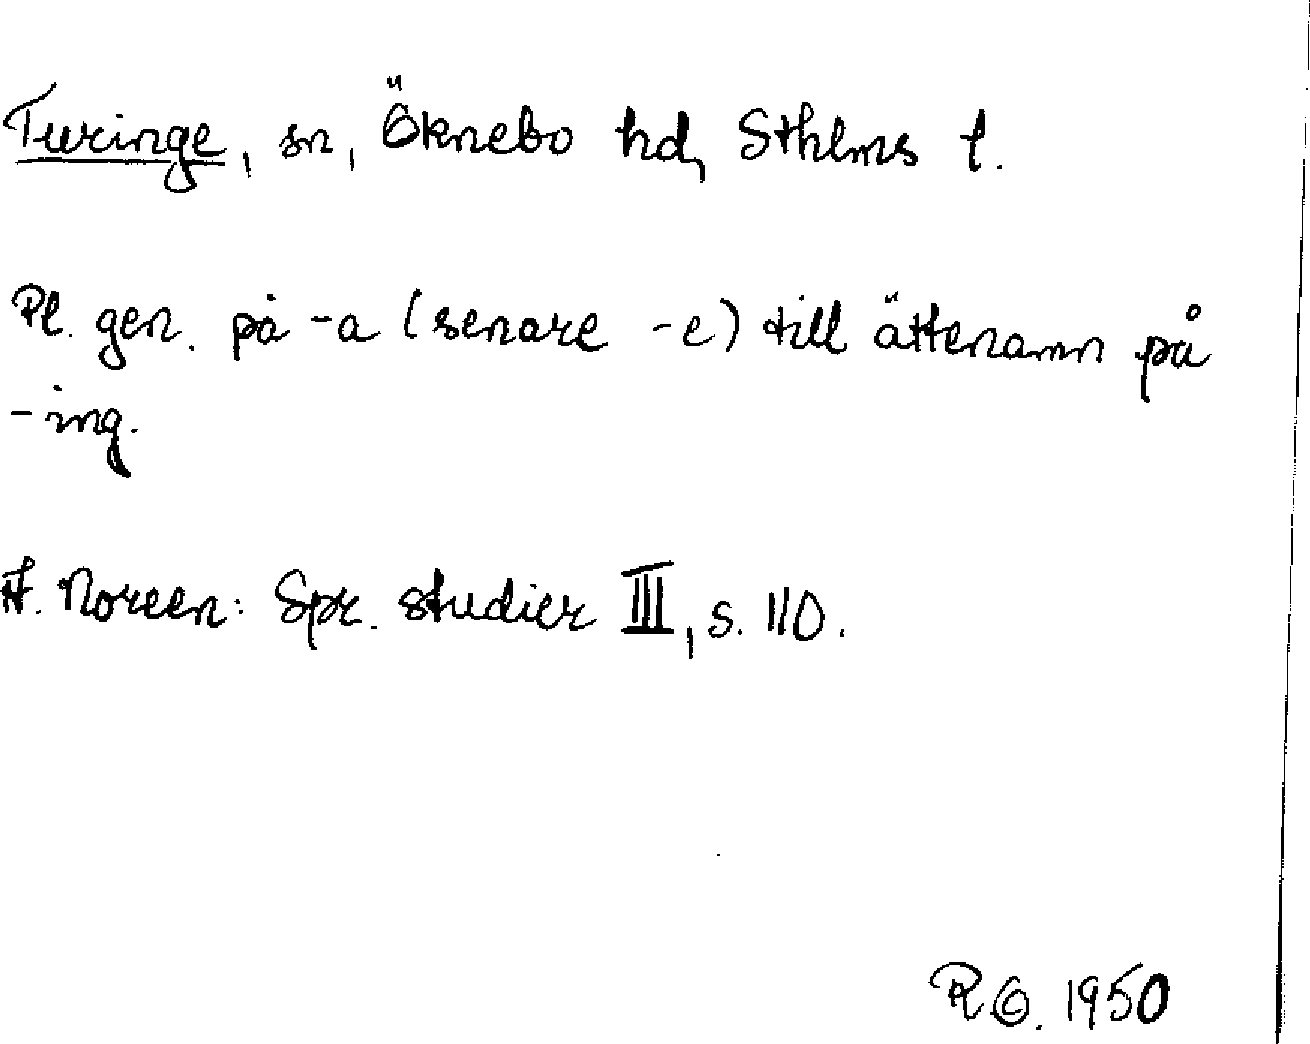 Turinge, sn, Öknebo hd, Sthlms l.
Pl. gen. på -a (senare -e) till ättenamn på
-ing.
A. Noreen: Spr. studier III, s. 110.
R G. 1950